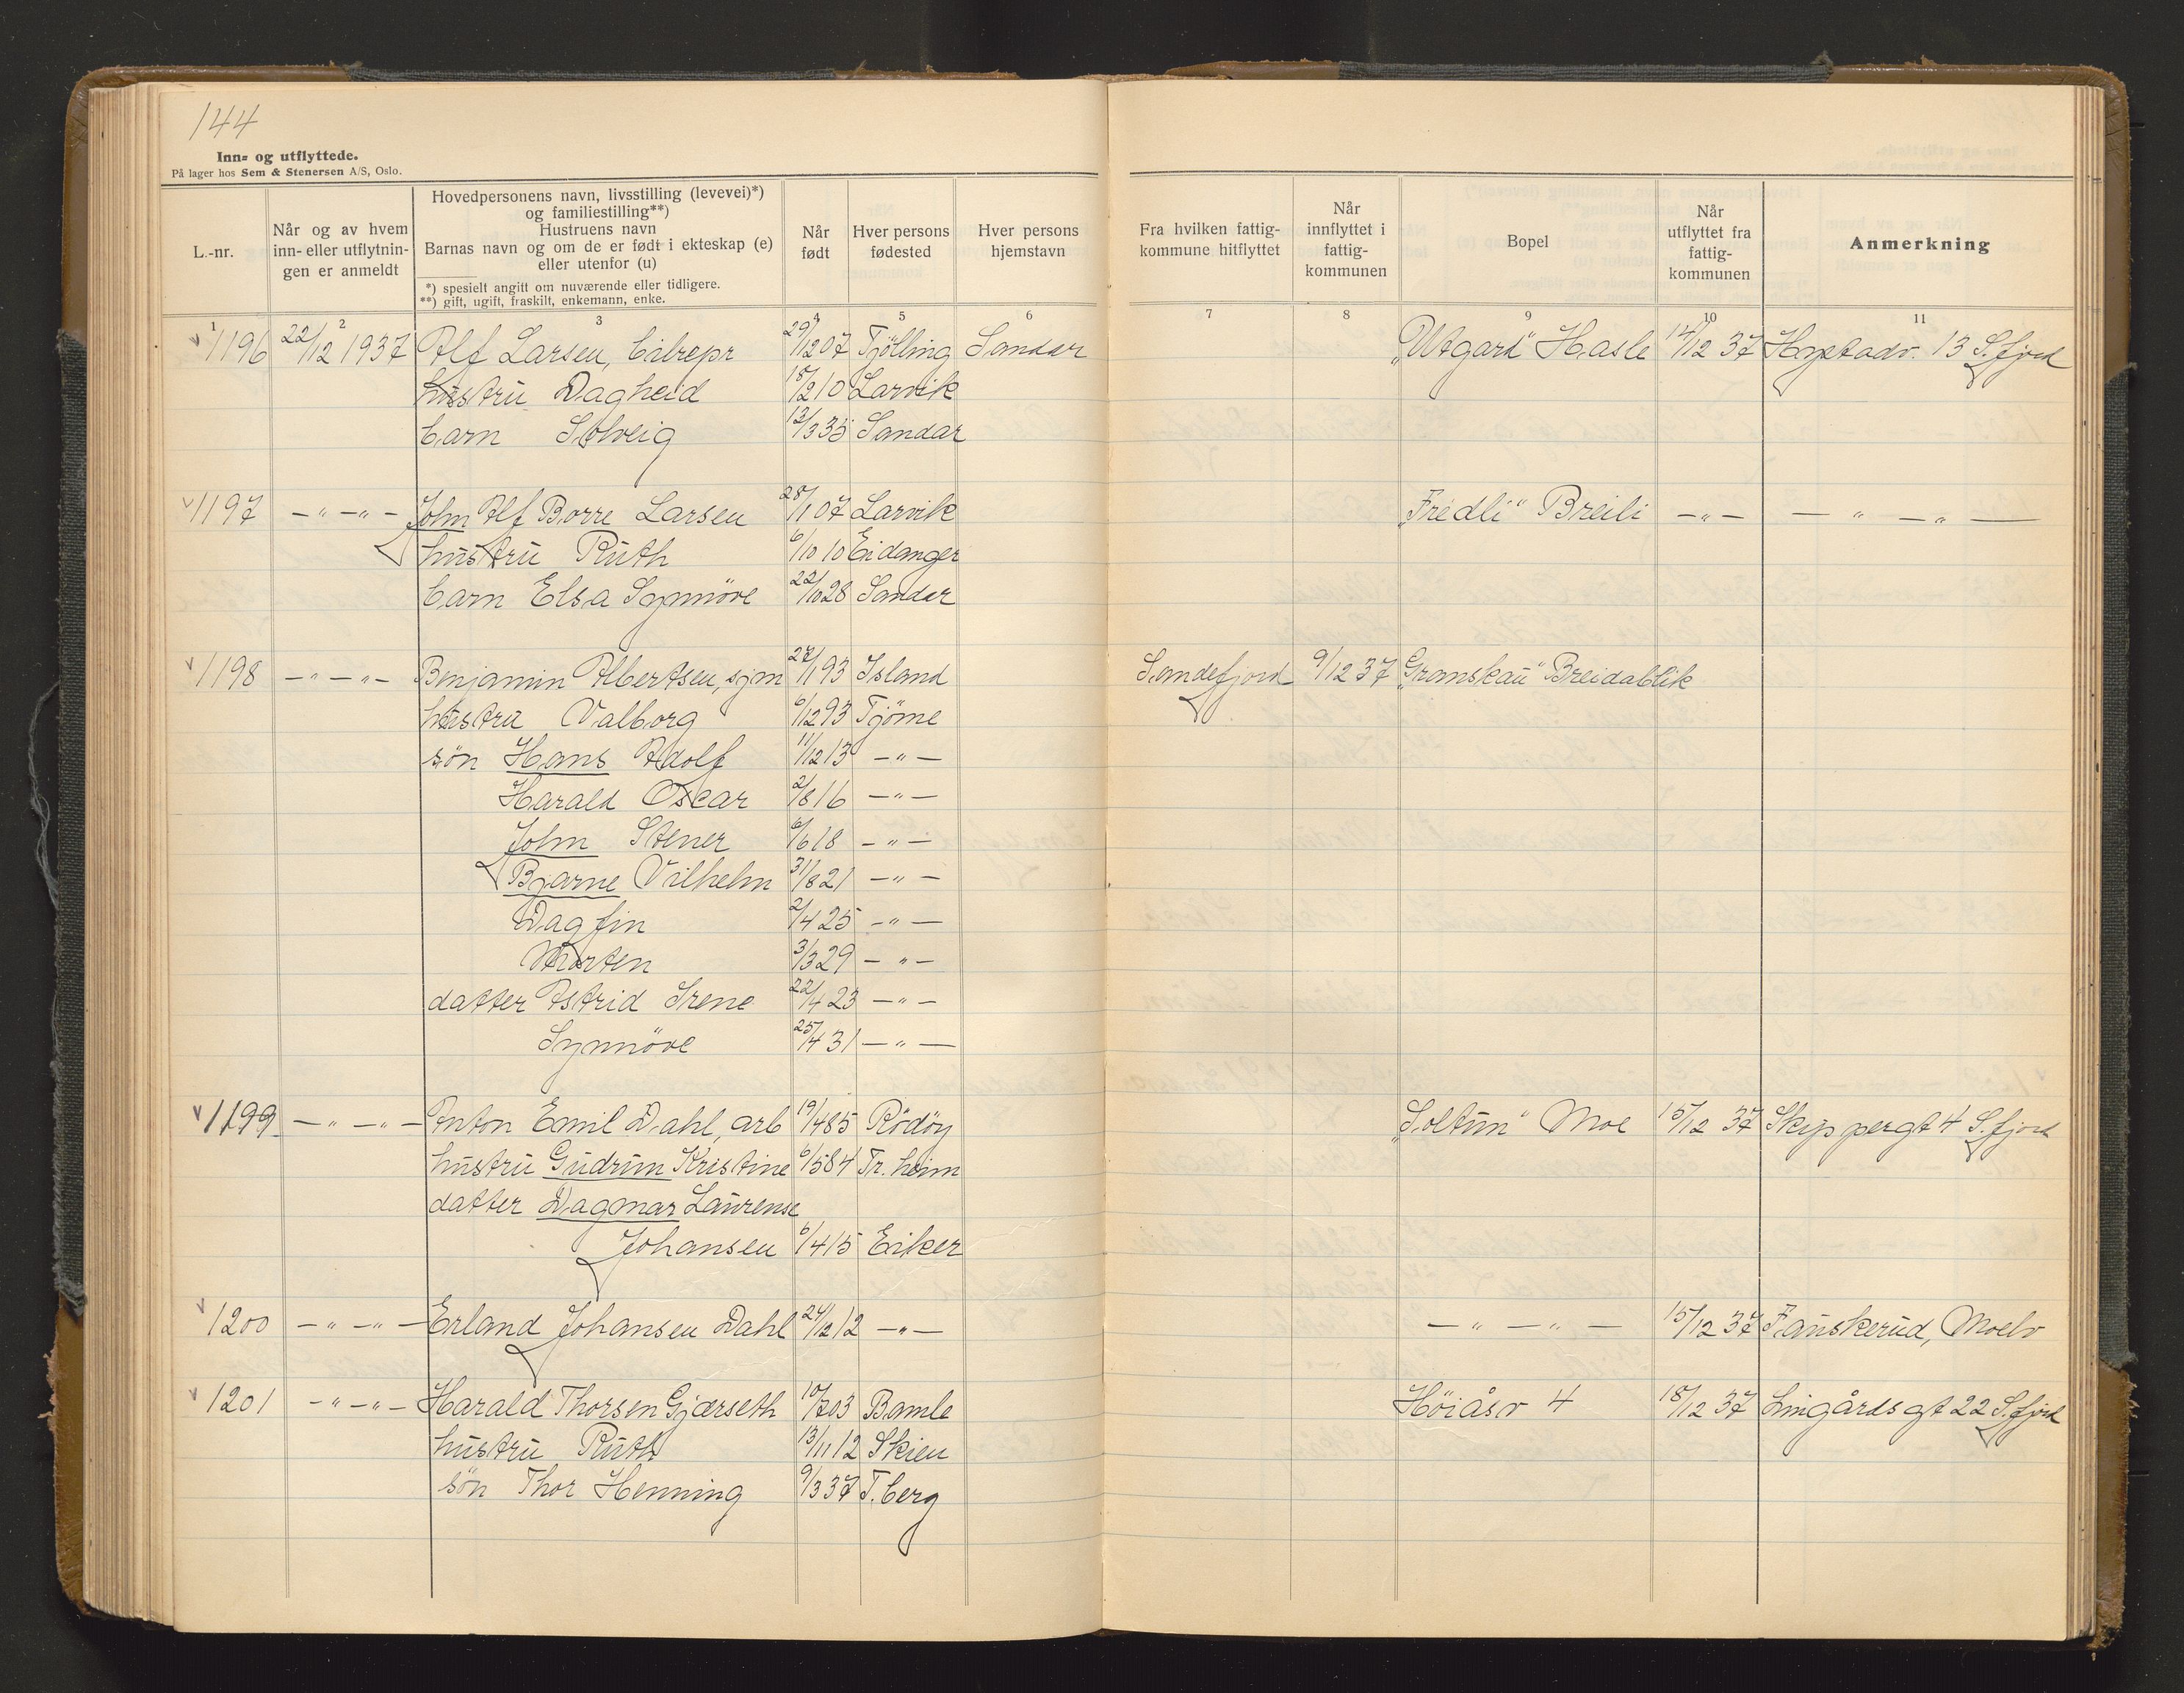 144
Inn= og utflyttede.
På lager hos Sem & Stenersen A/S, Oslo.
L.-nr.
Når og av hvem inn- eller utflytnin- gen er anmeldt
Hovedpersonens navn, livsstilling (levevei)*)
og familiestilling**)
Hustruens navn
Barnas navn og om de er født i ekteskap (e)
eller utenfor (u)
*) spesielt angitt om nuværende eller tidligere.
**) gift, ugift, fraskilt, enkemann, enke.
Når født
Hver persons fødested
Hver persons hjemstavn
Fra hvilken fattig- kommune hitflyttet
Når innflyttet i fattig- kommunen
Bopel
Når utflyttet fra fattig- kommunen
Anmerkning
1 2 3 4 5 6 7 8 9 10 11
v 1196 22/12 1937 Alf Larsen, bilrepr 29/12 07 Tjölling Sandar "Utgard" Hasle 14/12 37 13 S.fjord
hustru Dagheid 18/2 10 Larvik
barn Solveig 13/3 35 Sandar
v 1197 — " — " — John Alf Borre Larsen 28/1 07 Larvik "Fredli" Breili — " — — " — " —
hustru Ruth 6/10 10 Eidanger
barn Elsa Synnöve 22/10 28 Sandar
v 1198 — " — " — Benjamin Albertsen, sjm 27/1 93 Island Sandefjord 9/12 37 "Granskau" Breidablik
hustru Valborg 6/12 93 Tjöme
sön Hans Adolf 11/12 13 — " —
Harald Oscar 2/8 16 — " —
John Stener 6/6 18 — " —
Bjarne Vilhelm 31/8 21 — " —
Dagfin 2/4 25 — " —
Morten 3/3 29 — " —
datter Astrid Irene 22/4 23 — " —
Synnöve 25/4 31 — " —
v 1199 — " — " — Anton Emil Dahl, arb 19/4 85 Rödöy "Soltun" Moe 15/12 37 Skippergt 4 S.fjord
hustru Gudrun Kristine 6/5 84 Tr.heim
datter Dagmar Laurense
Johansen 6/4 15 Eiker
v 1200 — " — " — Erland Johansen Dahl 24/12 12 — " — — " — " — 15/12 37 Fauskerud, Moelv
v 1201 — " — " — Harald Thorsen Gjærseth 10/7 03 Bamle Höiåsv 4 18/12 37 Lingårdsgt 22 S.fjord
hustru Ruth 13/11 12 Skien
sön Thor Henning 9/3 37 T.berg